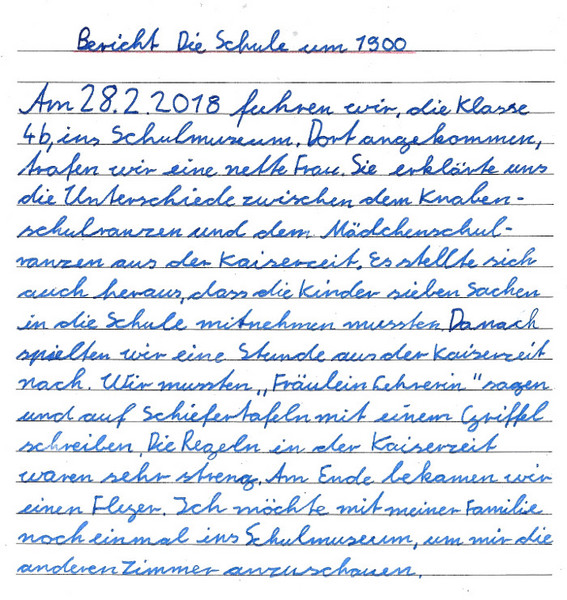 Bericht Die Schule um 1900
Am 28.2.2018 fuhren wir, die Klasse
4b, ins Schulmuseum. Dort angekommen,
trafen wir eine nette Frau. Sie erklärte uns
die Unterschiede zwischen dem Knaben-
schulranzen und dem Mädchenschul-
ranzen aus der Kaiserzeit. Es stellte sich
auch heraus, dass die Kinder sieben Sachen
in die Schule mitnehmen mussten. Danach
spielten wir eine Stunde aus der Kaiserzeit
nach. Wir mussten „Fräulein Lehrerin" sagen
und auf Schiefertafeln mit einem Griffel
schreiben. Die Regeln in der Kaiserzeit
waren sehr streng. Am Ende bekamen wir
einen Flyer. Ich möchte mit meiner Familie
noch einmal ins Schulmuseum, um mir die
anderen Zimmer anzuschauen.